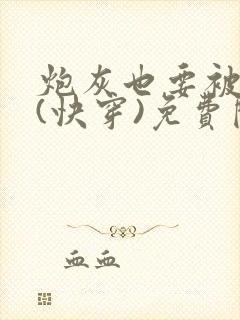 炮灰也要被
(快穿)免費
血血